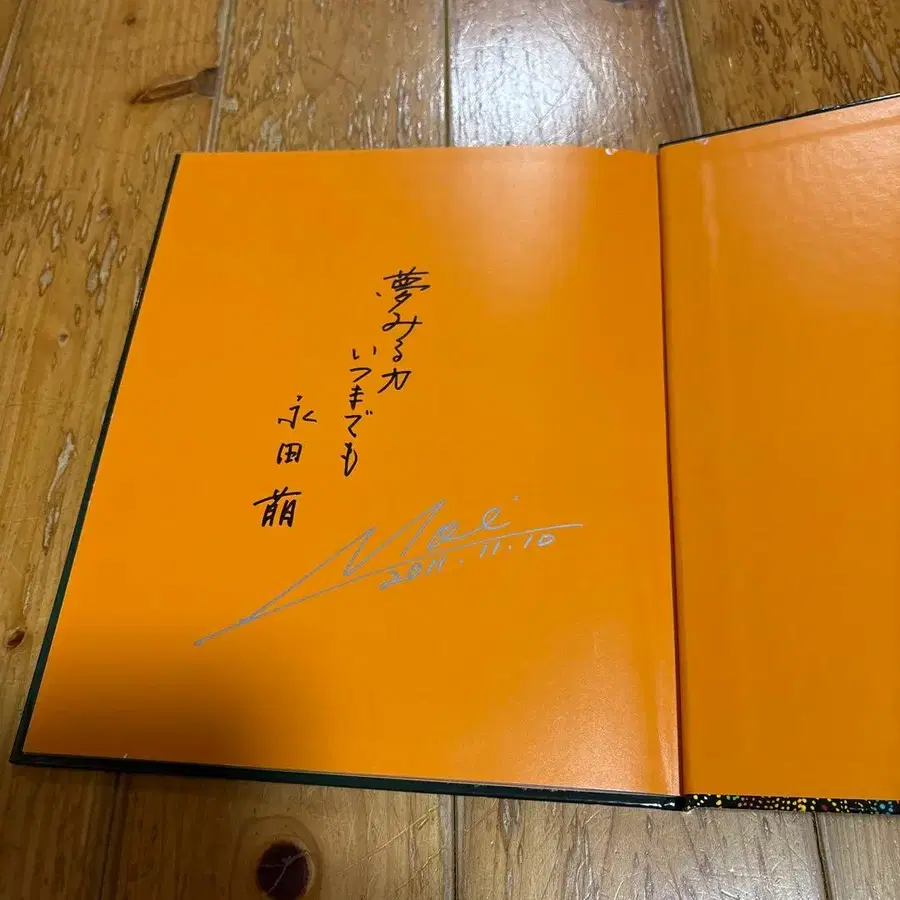 夢みる力
いつまでも
永田
萠
Moe
2011.11.10